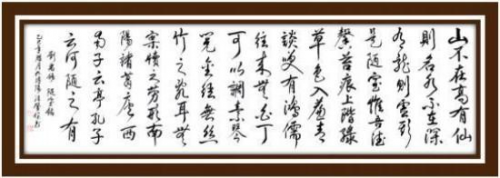 山不在高有仙
則名水不在深
有龍則靈斯
是陋室惟吾德
馨苔痕上階綠
草色入簾青
談笑有鴻儒
往來無白丁
可以調素琴
閱金經無絲
竹之亂耳無
案牘之勞形南
陽諸葛廬西
蜀子雲亭孔子
云何陋之有
劉禹錫 陋室銘